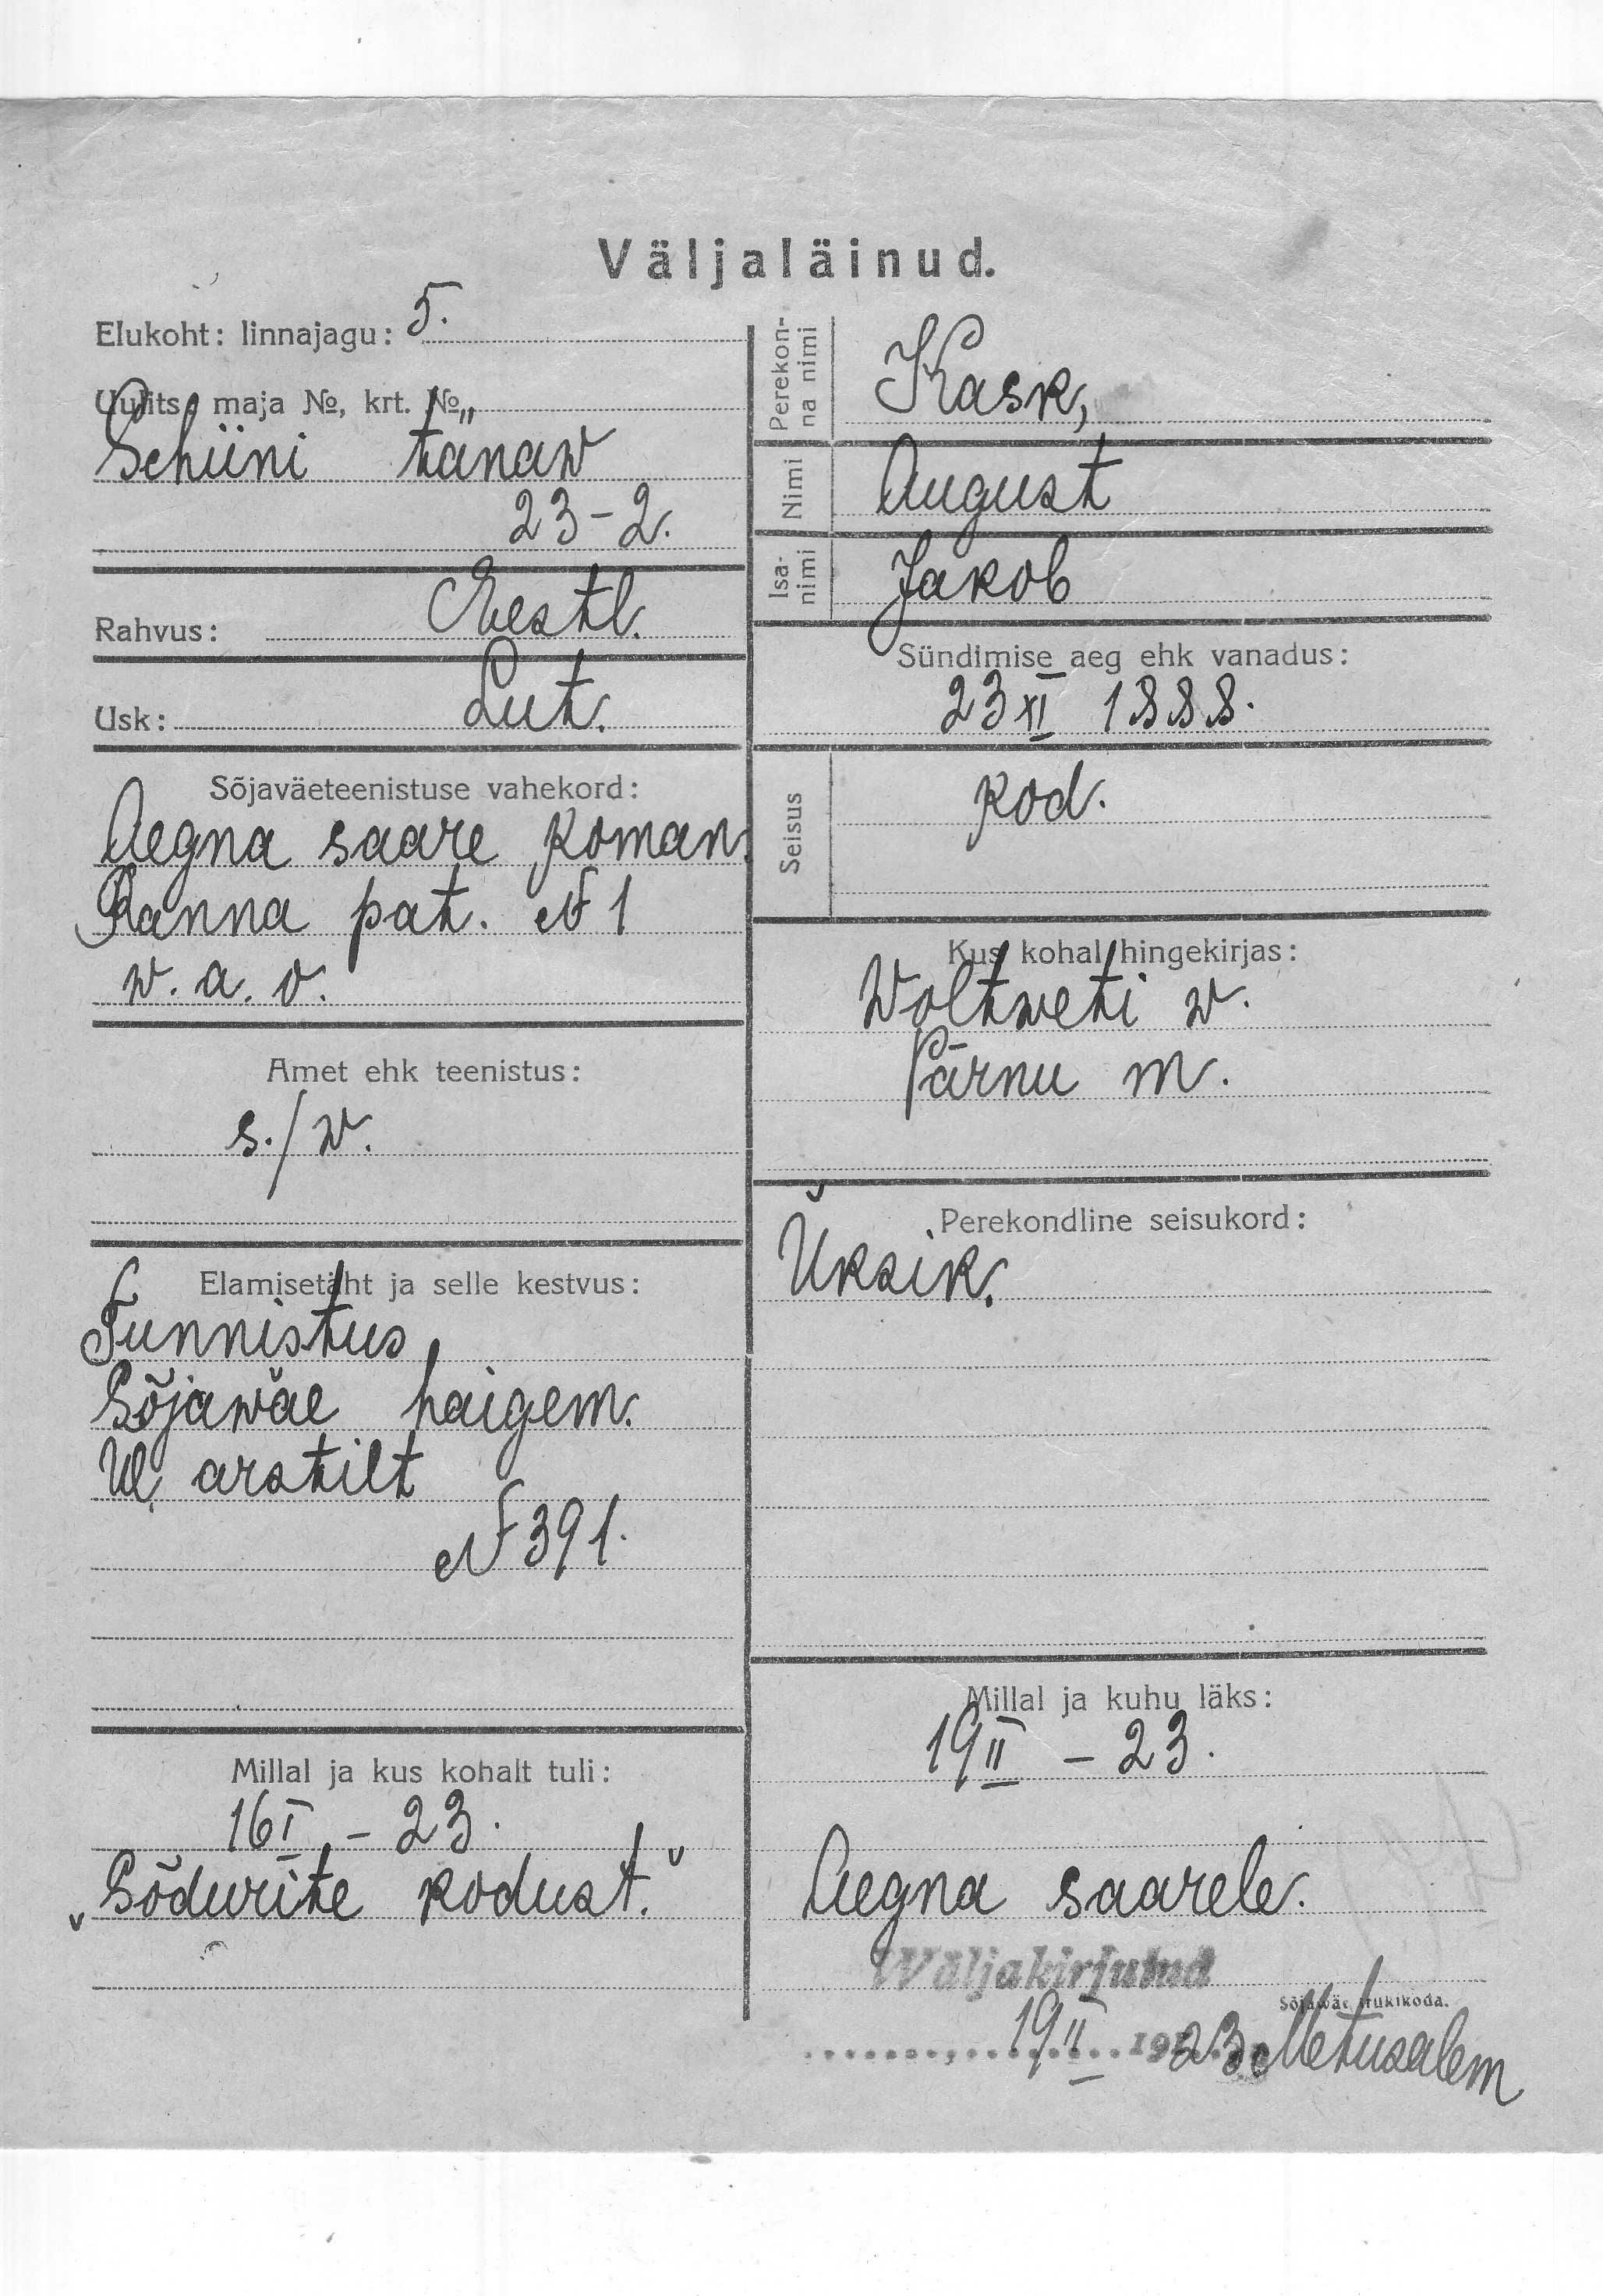 Väljaläinud.
Elukoht: linnajagu: 5.
Uulits, maja №, krt. №
Schiini tänaw
23-2.
Rahvus: Eestl.
Usk: Lut.
Sõjaväeteenistuse vahekord:
Aegna saare Koman.
Ranna pat. № 1
w. a. o.
Amet ehk teenistus:
s./w.
Elamisetäht ja selle kestvus:
Tunnistus
Sõjawäe haigem.
arstilt
№ 391.
Millal ja kus kohalt tuli:
16 I – 23.
„Sõdurite kodust."
Perekonna nimi
Kask,
Nimi
August
Isanimi
Jakob
Sündimise aeg ehk vanadus:
23 XI 1888.
Seisus
kod.
Kus kohal hingekirjas:
Woltweti w.
Pärnu m.
Perekondline seisukord:
Üksik.
Millal ja kuhu läks:
19 II – 23.
Aegna saarele.
Wäljakirjutud
Sõjawäe trükikoda.
19 II 1923 Metusalem